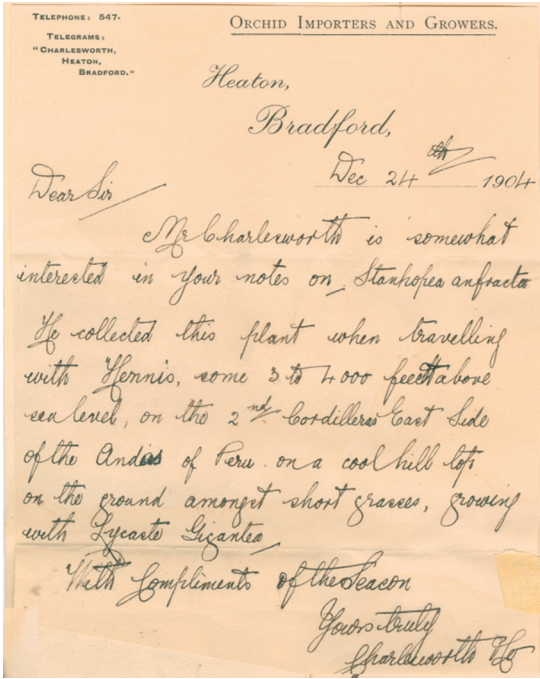 TELEPHONE: 547.
TELEGRAMS:
"CHARLESWORTH,
HEATON,
BRADFORD."
ORCHID IMPORTERS AND GROWERS.
Heaton,
Bradford,
Dec 24th 1904
Dear Sir
Mr Charlesworth is somewhat
interested in your notes on Stanhopea anfracta
He collected this plant when travelling
with Hennis, some 3 to 4000 feet above
sea level, on the 2nd Cordilleras East Side
of the Andes of Peru. on a cool hill top
on the ground amongst short grasses, growing
with Lycaste Gigantea
With Compliments of the Seacon
Yours truly
Charlesworth & Co